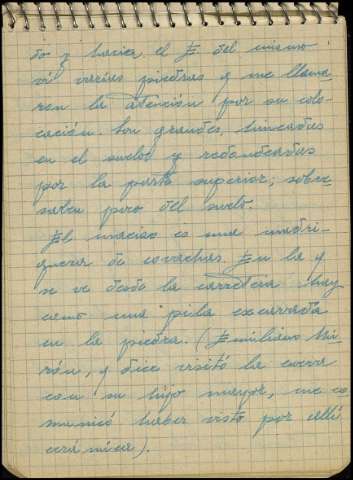 do y hacia el E. del mismo
vi varias piedras y me llama
ron la atención por su colo-
cación. Son grandes, hincadas
en el suelo y redondeadas
por la parte superior; sobre
salen poco del suelo.
El macizo es una madri-
guera de covachas. En la q
se ve desde la carretera hay
como una pila excavada
en la piedra. (Emiliano Mi-
rón, q dice visitó la cueva
con su hijo mayor, me co
municó haber visto por allí
cerámica).